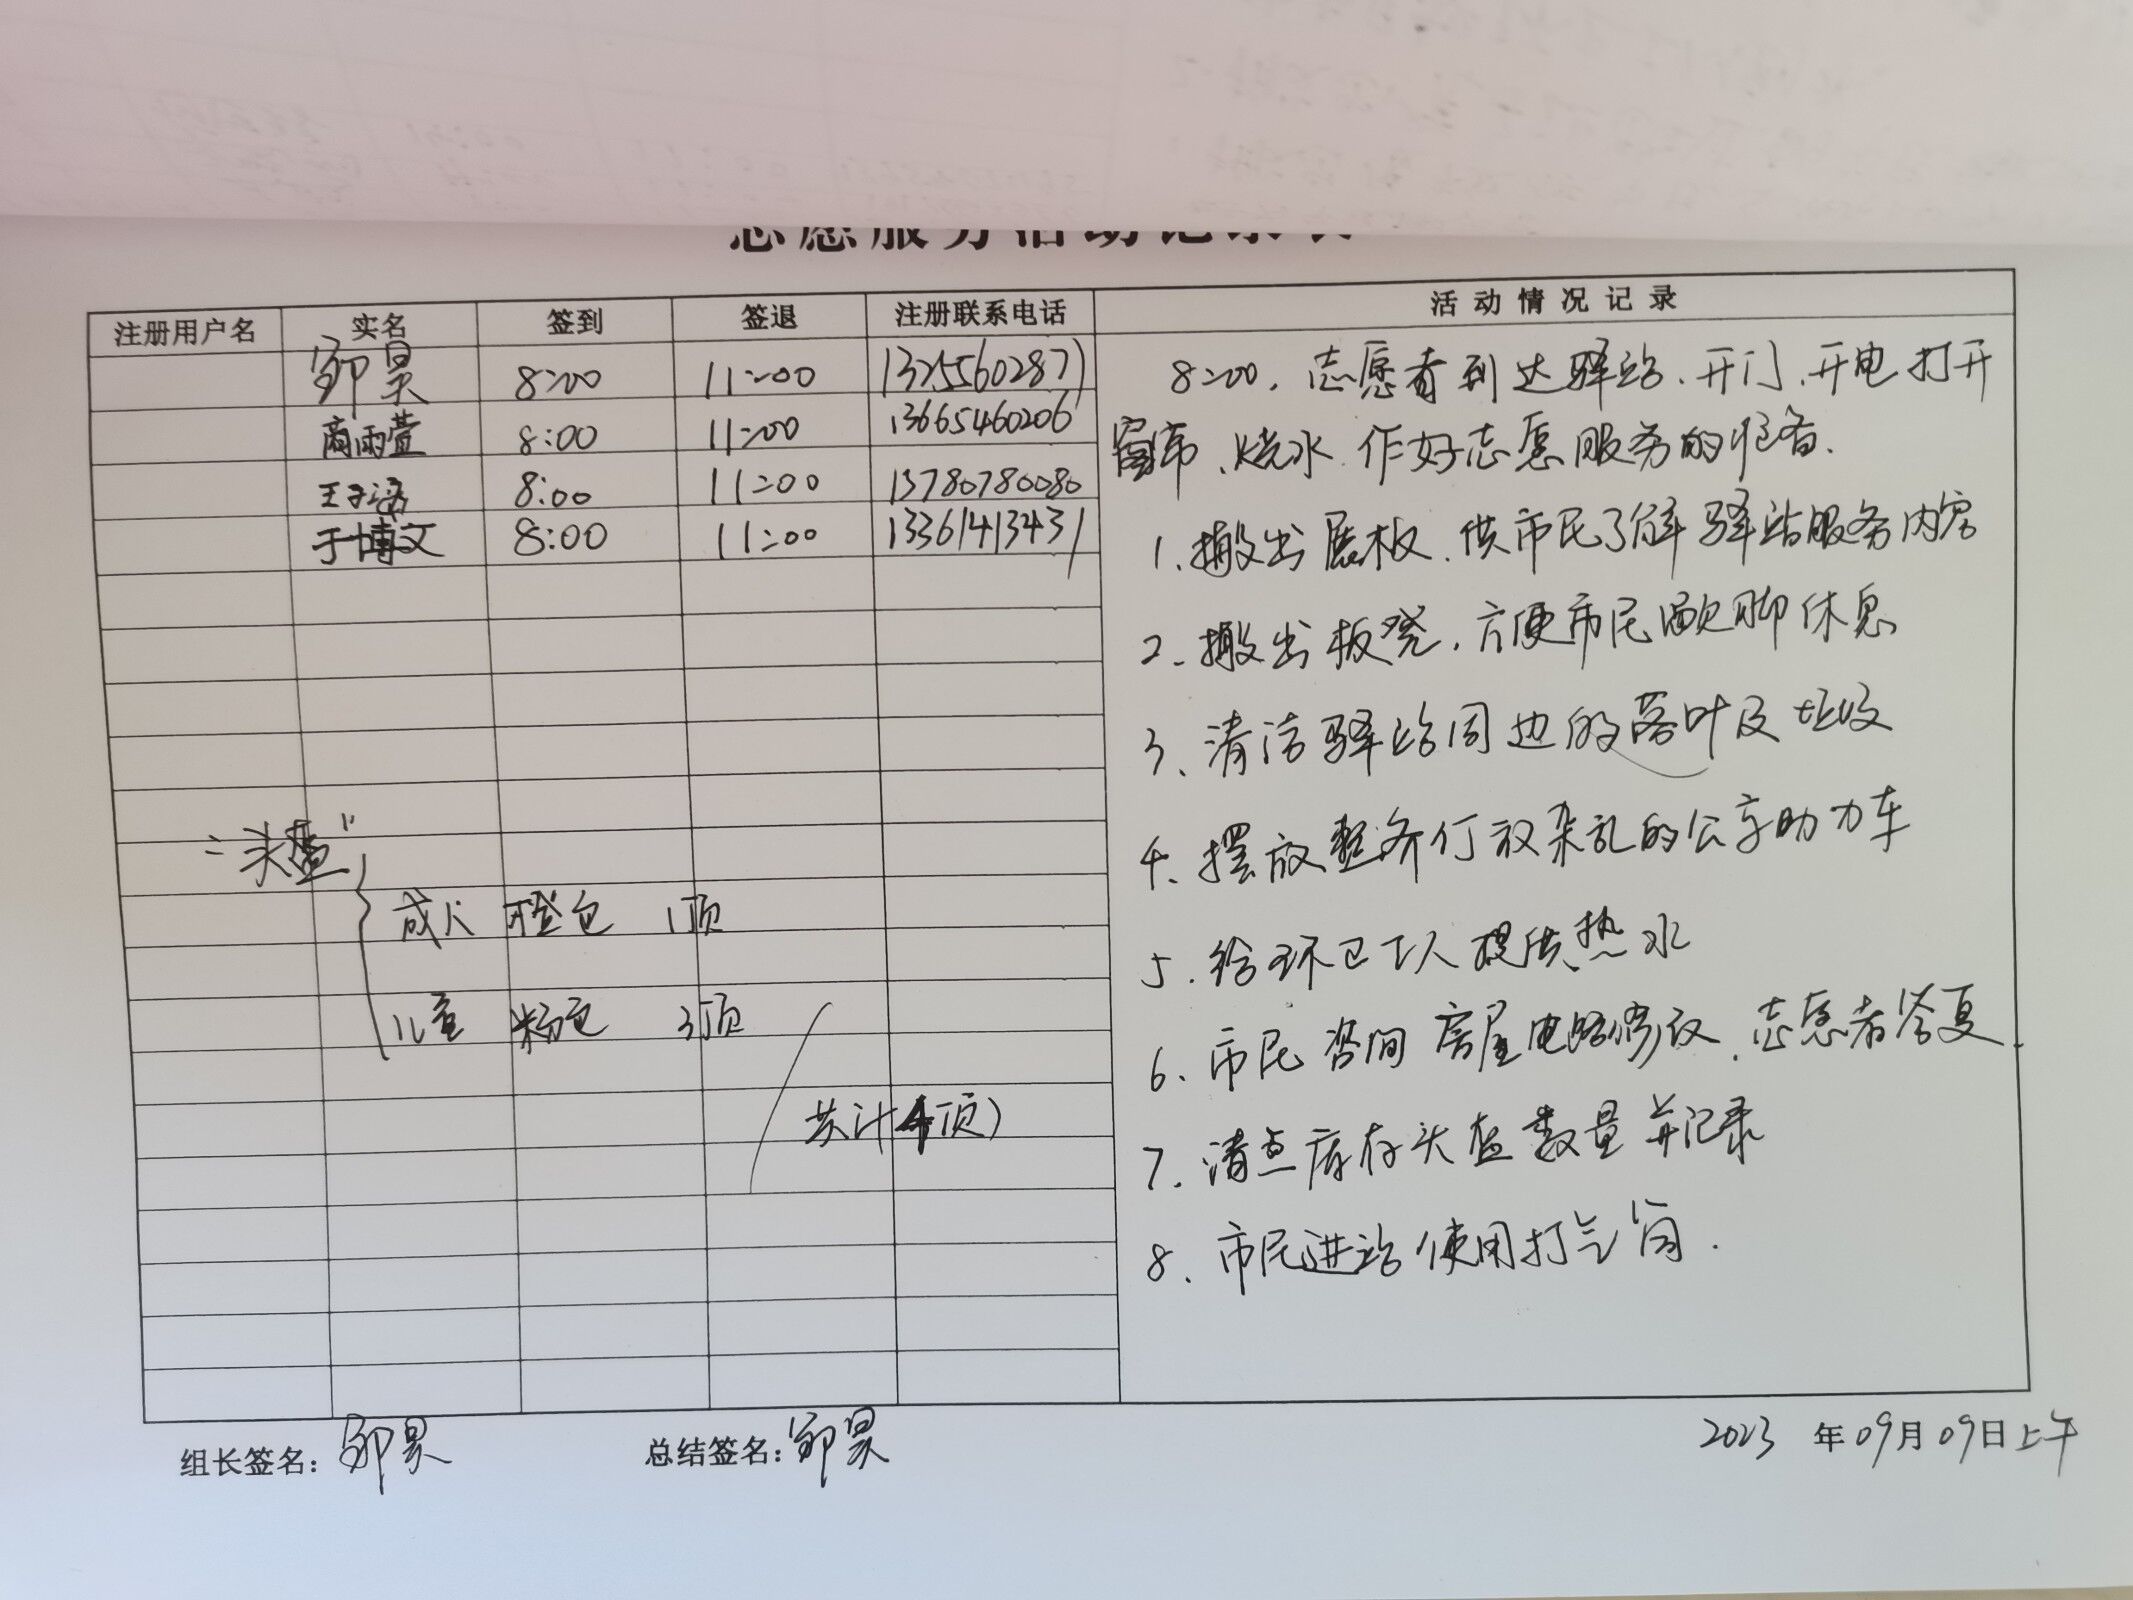 志愿服务活动记录表
注册用户名 实名 签到 签退 注册联系电话 活动情况记录
邹昊 8:00 11:00 13255602877
商雨萱 8:00 11:00 13665460206
王子涵 8:00 11:00 13780780080
于博文 8:00 11:00 13361413431
8:00,志愿者到达驿站、开门、开电打开
窗帘、烧水.作好志愿服务的准备.
1、搬出展板、供市民了解驿站服务内容
2、搬出板凳,方便市民歇脚休息
3、清洁驿站周边的落叶及垃圾
4、摆放整齐停放杂乱的公享助力车
5、给环卫工人提供热水
6、市民咨询房屋电路修改、志愿者答复
7、清点库存头盔数量并记录
8、市民进站使用打气筒.
"头盔"
成人 橙色 1顶
儿童 粉色 3顶
共计4顶)
组长签名:邹昊 总结签名:邹昊 2023年09月09日上午